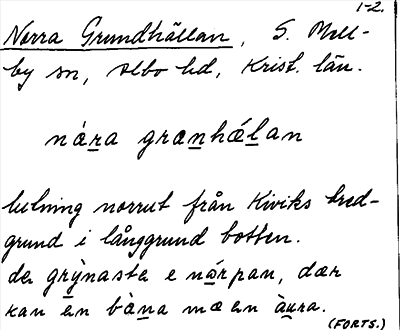 1-2.
Norra Grundhällan, S. Mell-
by sn, Albo hd, Krist. län.
nára grænhǽlan
lutning norrut från Kiviks bred-
grund i långgrund botten.
de grýnasta e nǻrpan, dær
kan én bàna mæ en àura.
(FORTS.)